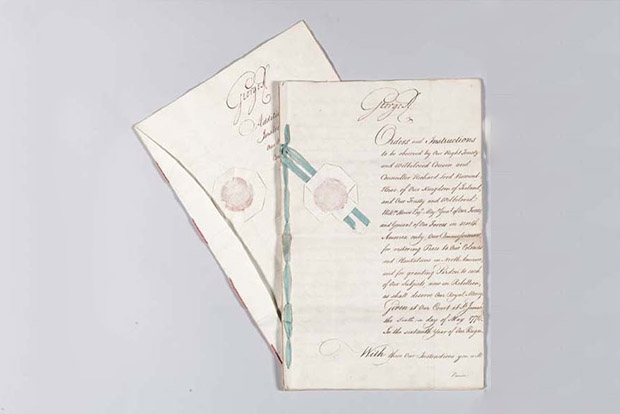 George R
Additi
Instru
George R.
Orders and Instructions
to be observed by Our Right Trusty
and Welbeloved Cousin and
Councillor Richard Lord Viscount
Howe of Our Kingdom of Ireland,
and Our Trusty and Welbeloved
Will^m Howe Esq^r May^r Gen^l of Our Forces
and General of Our Forces in North
America only, Our Commissioners
for restoring Peace to Our Colonies
and Plantations in North America,
and for granting Pardon to such
of Our Subjects, now in Rebellion,
as shall deserve Our Royal Mercy.
Given at Our Court at S^t James's
the Sixth day of May 1776.
In the sixteenth Year of Our Reign
With these Our Instructions you will